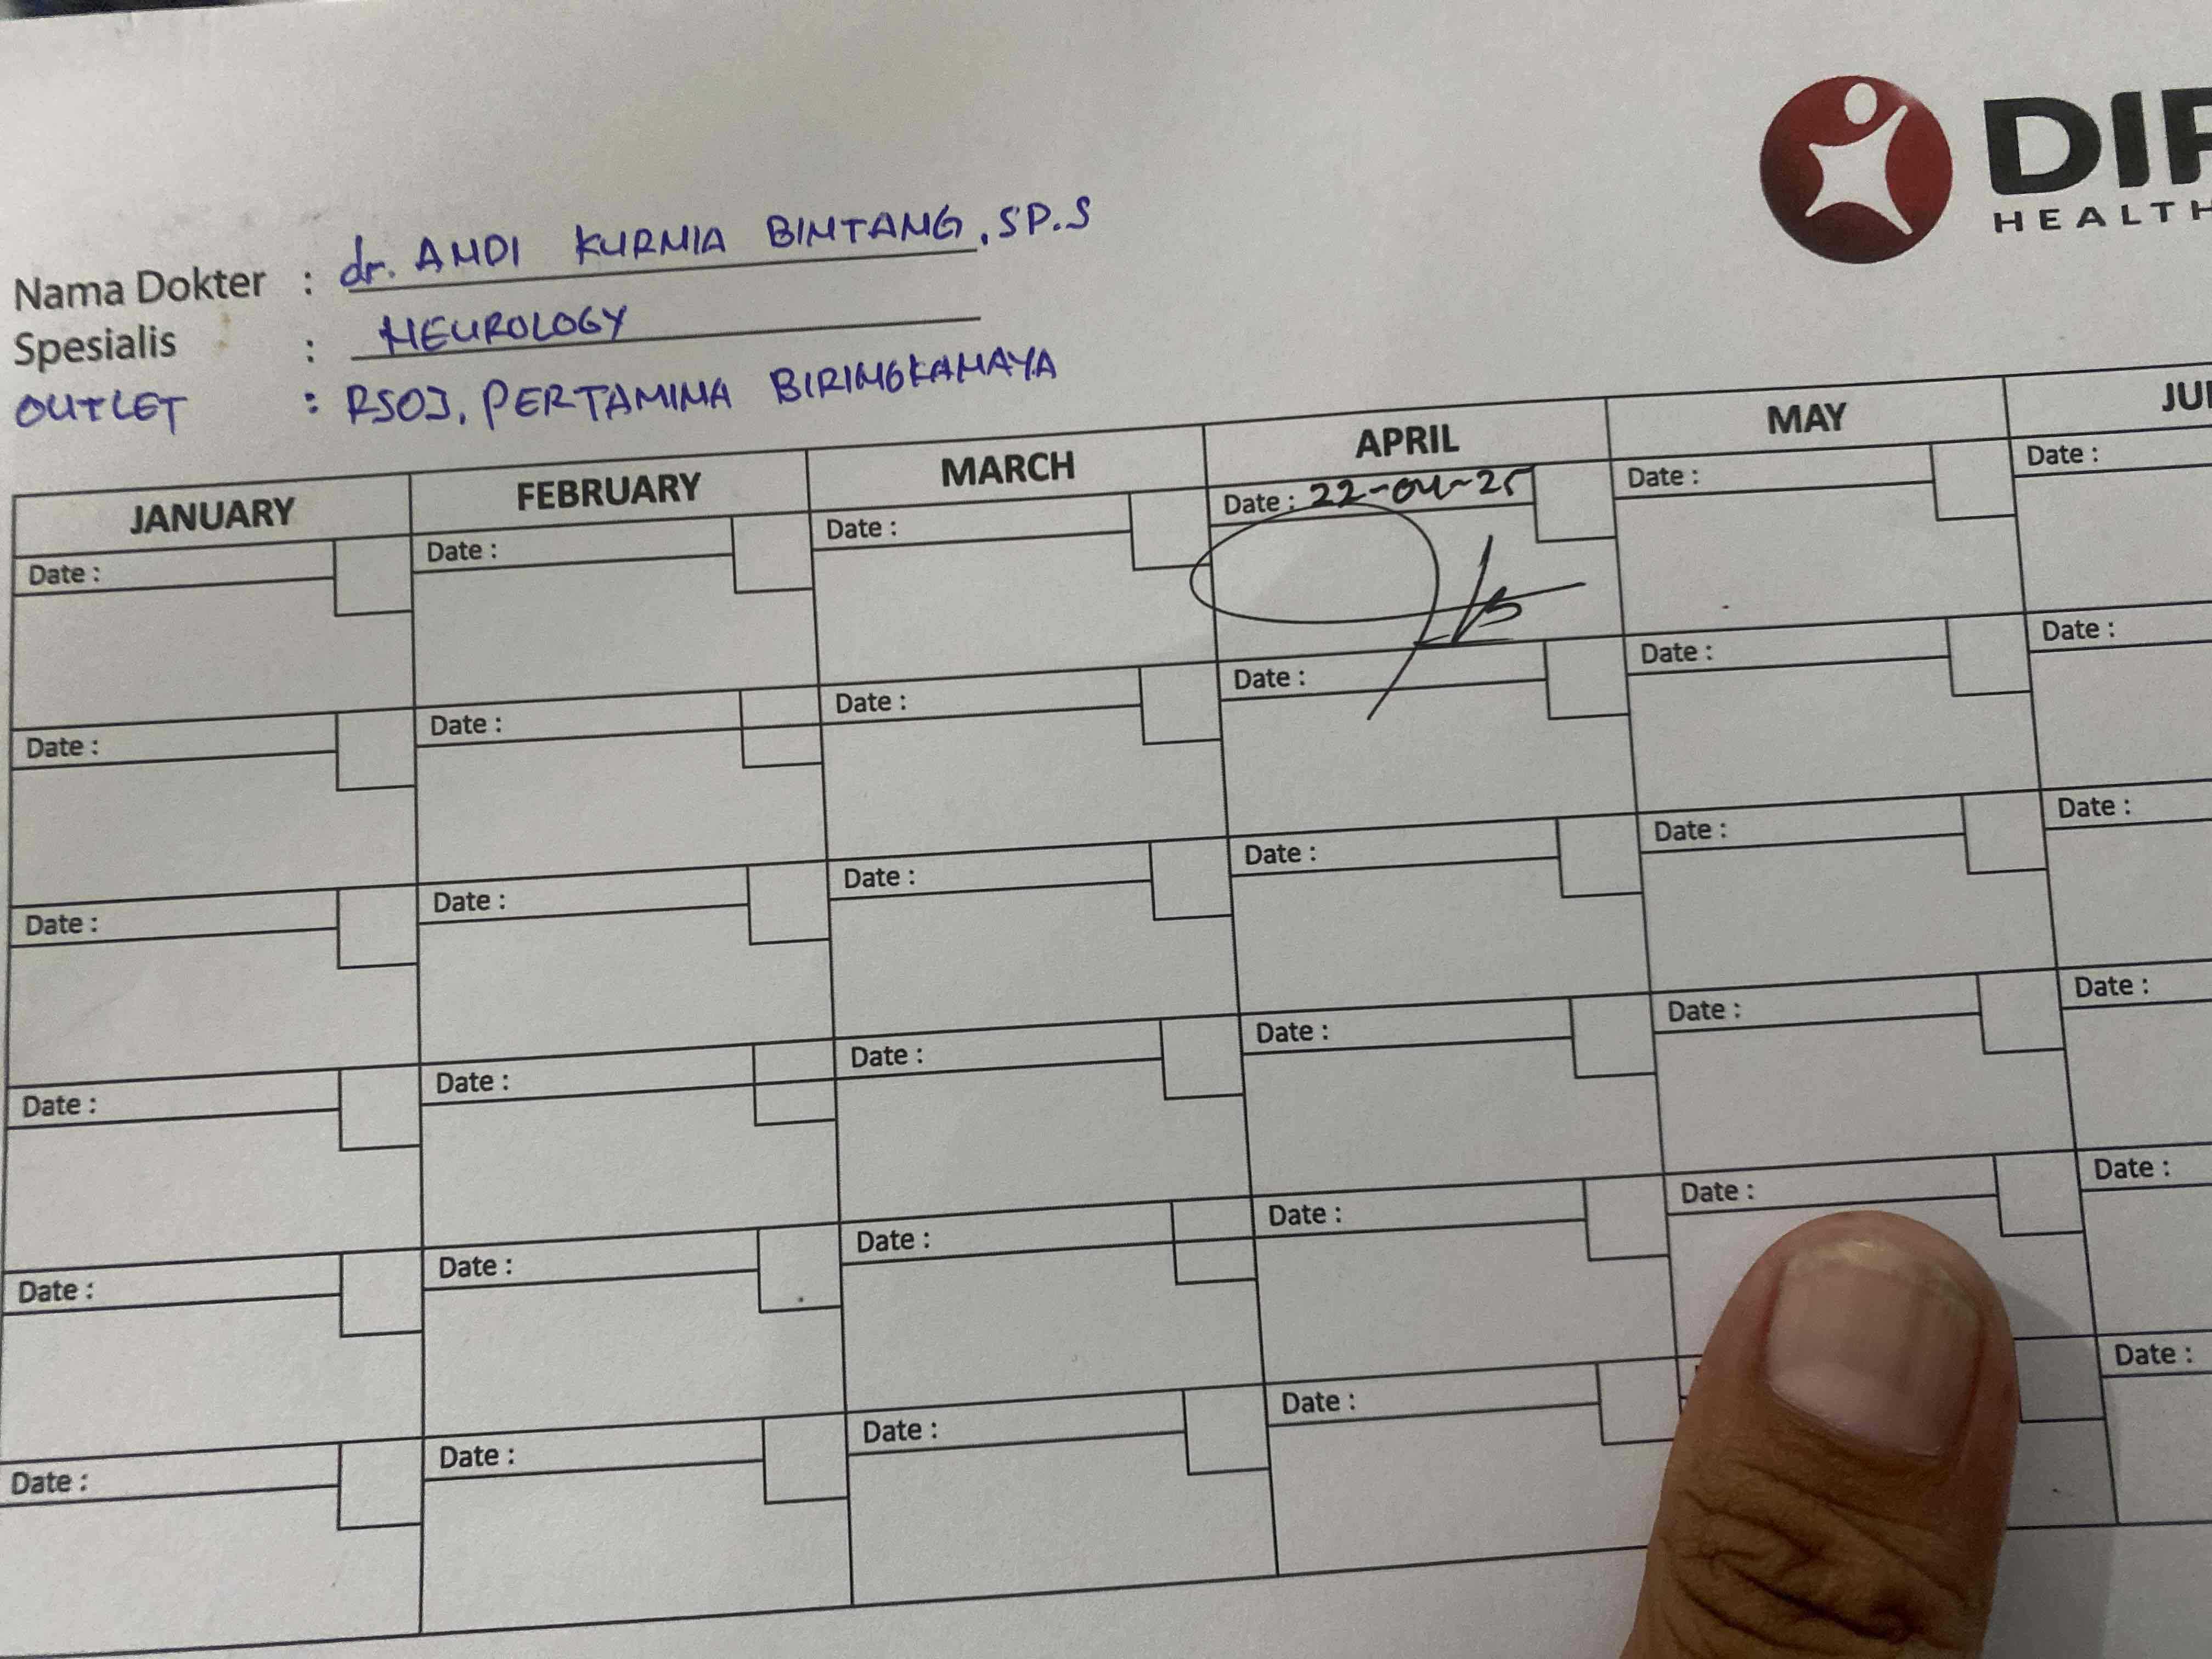 DIP
HEALTH
Nama Dokter : dr. ANDI KURNIA BINTANG, SP.S
Spesialis : NEUROLOGY
OUTLET : RSOJ. PERTAMINA BIRINGKANAYA
JANUARY FEBRUARY MARCH APRIL MAY JU
Date : Date : Date : Date : 22-04-25 Date : Date :
Date : Date : Date : Date : Date : Date :
Date : Date : Date : Date : Date : Date :
Date : Date : Date : Date : Date : Date :
Date : Date : Date : Date : Date : Date :
Date : Date : Date : Date : Date :